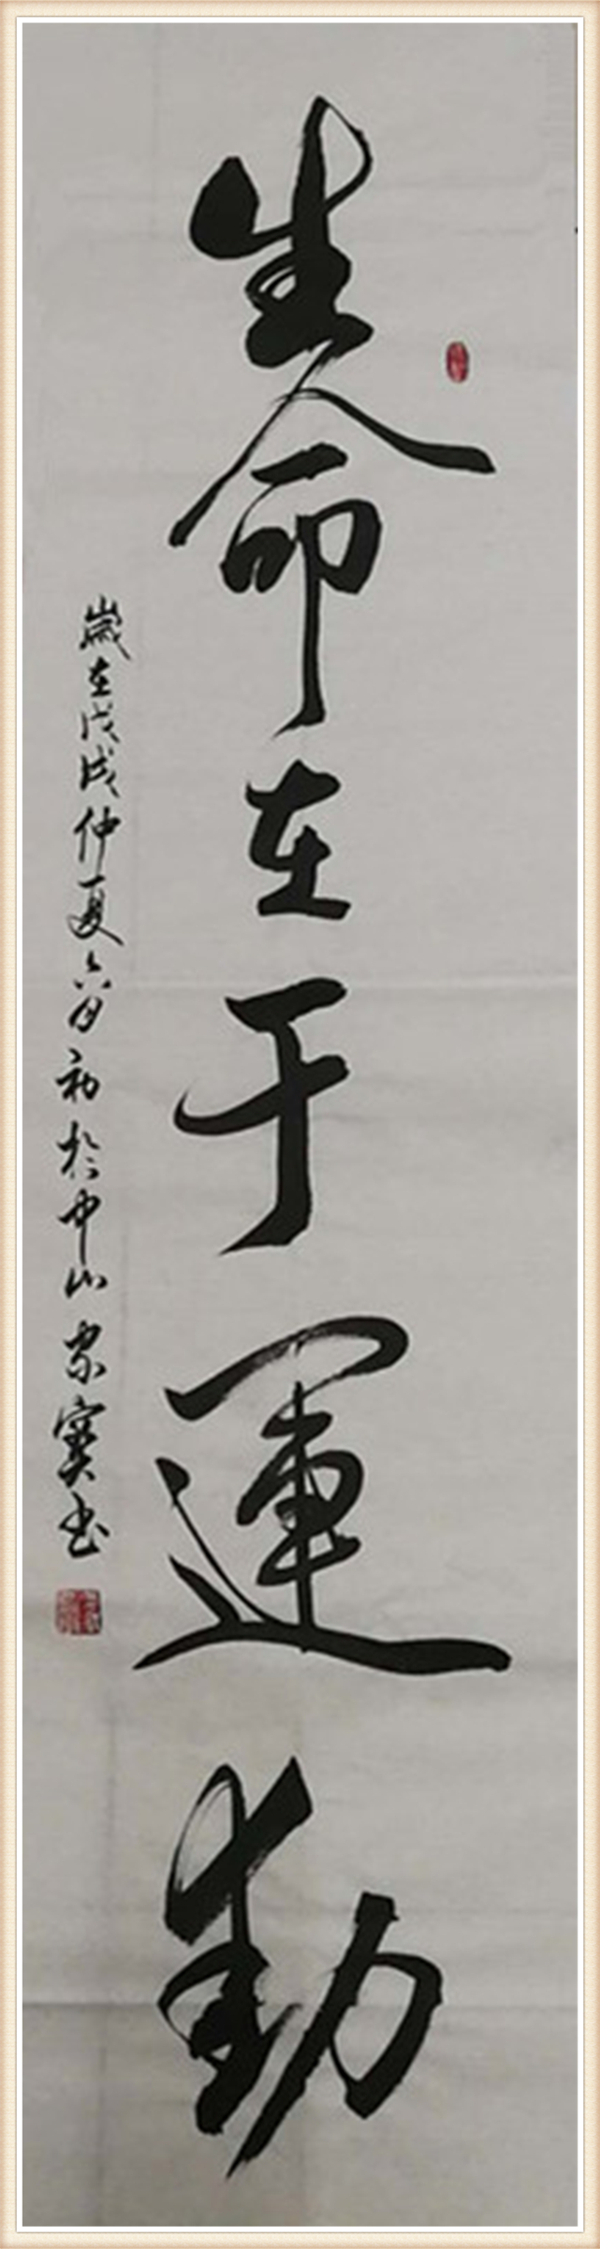 生命在于運動
歲在戊戌仲夏六月初於中山家寶书